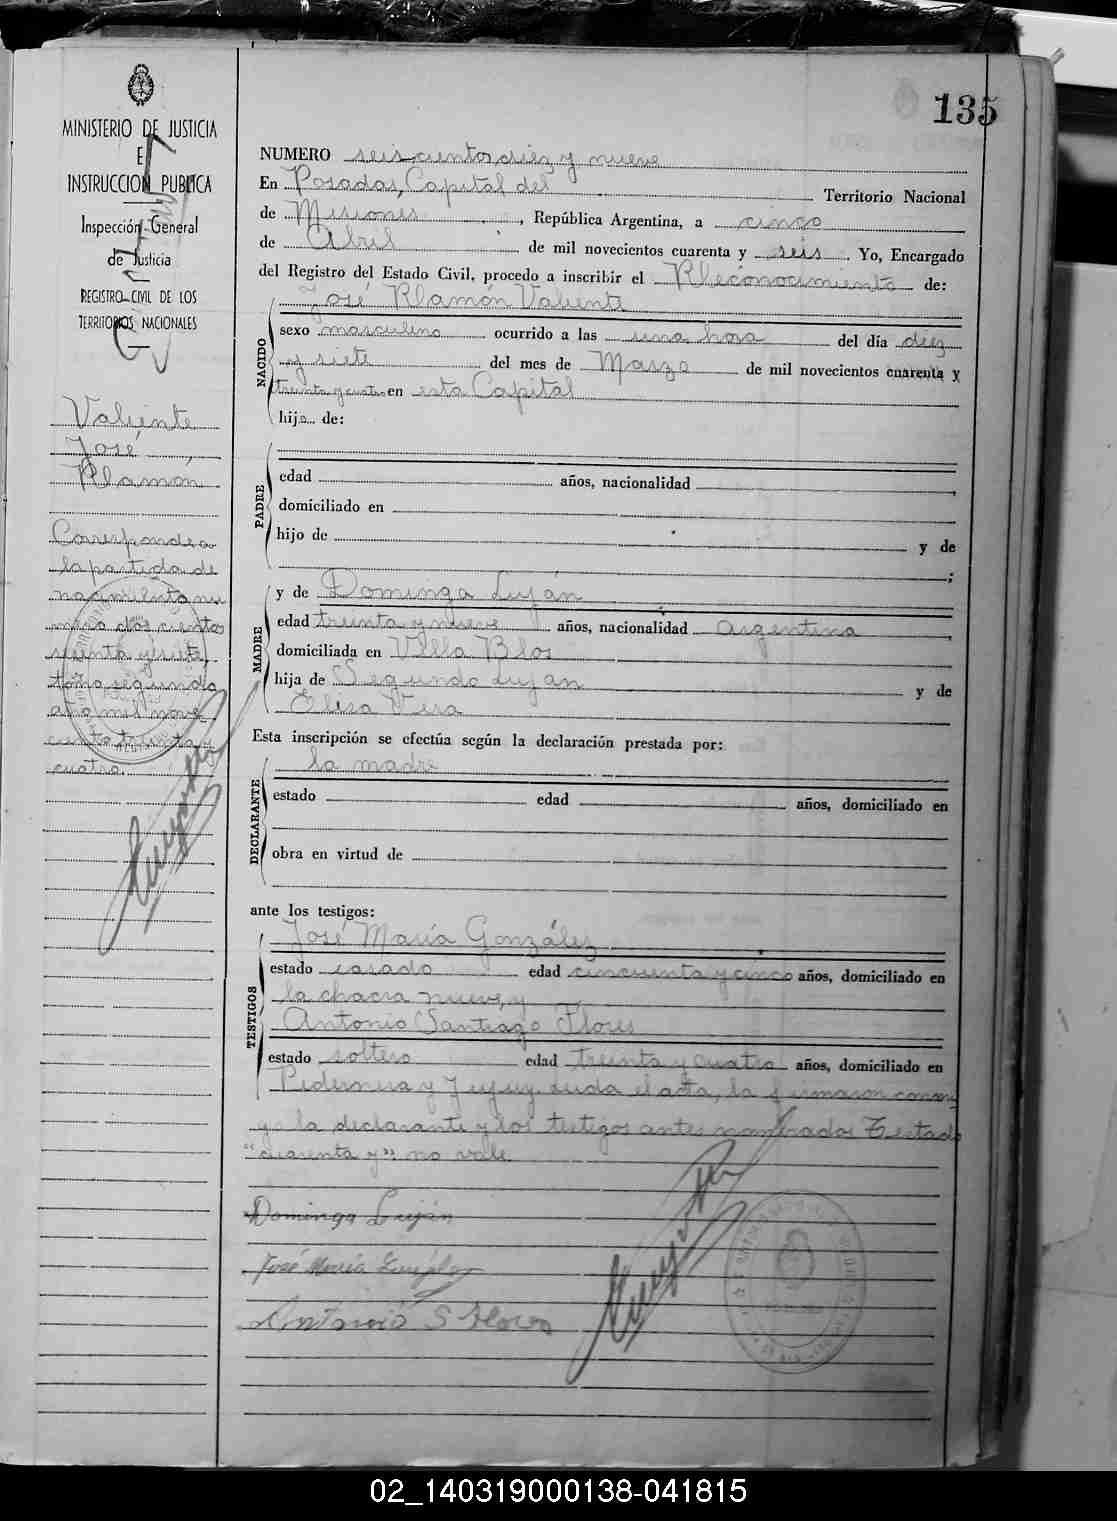 135
MINISTERIO DE JUSTICIA
E
INSTRUCCION PUBLICA
Inspección General
de Justicia
REGISTRO CIVIL DE LOS
TERRITORIOS NACIONALES
Valiente
José,
Rlamón
Corresponde a
la partida de
nacimiento nu
mero dos cientos
seis cientos diez y nueve
NUMERO seis cientos diez y nueve
En Posadas, Capital del Territorio Nacional
de Misiones, República Argentina, a cinco
de Abril de mil novecientos cuarenta y seis. Yo, Encargado
del Registro del Estado Civil, procedo a inscribir el Rheconocimiento de:
José Rlamón Valiente
NACIDO
sexo masculino ocurrido a las una hora del día diez
y siete del mes de Marzo de mil novecientos cuarenta y
treinta y cuatro en esta Capital
hijo de:
PADRE
edad años, nacionalidad ,
domiciliado en
hijo de y de
;
MADRE
y de Dominga Luján
edad treinta y nueve años, nacionalidad argentina,
domiciliada en Villa Blos
hija de Segundo Luján y de
Elisa Vera
Esta inscripción se efectúa según la declaración prestada por:
DECLARANTE
la madre
estado edad años, domiciliado en
obra en virtud de
ante los testigos:
TESTIGOS
José María González
estado casado edad cincuenta y cinco años, domiciliado en
la chacra nueve, y
Antonio Santiago Flores
estado soltero edad treinta y cuatro años, domiciliado en
Pedernera y Jujuy. Leída el acta, la firmaron conmi
go la declarante y los testigos antes nombrados Testado
"cuarenta y" no vale.
Dominga Luján
José María González
Antonio S Flores
tomo segundo
año mil nove
ciento treinta y
cuatro.
02_140319000138-041815